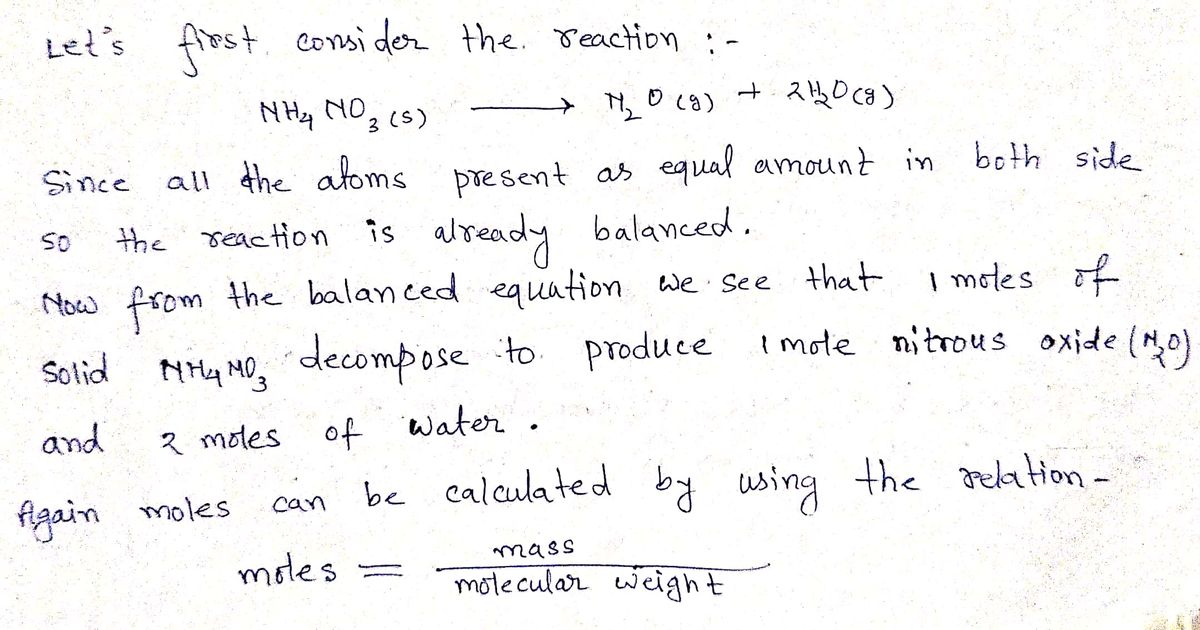 Let's first consider the reaction :-
NH4NO3(s) ⟶ N2O(g) + 2H2O(g)
Since all the atoms present as equal amount in both side
so the reaction is already balanced.
Now from the balanced equation we see that 1 moles of
Solid NH4NO3 decompose to produce 1 mole nitrous oxide (N2O)
and 2 moles of water.
Again moles can be calculated by using the relation-
moles = mass
molecular weight